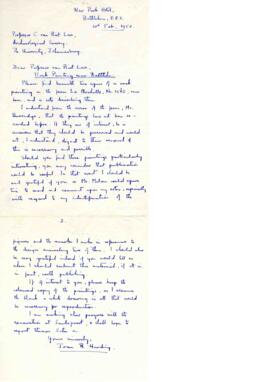 New Park Hotel,
Bethlehem, O.F.S.
10th Feb., 1950.
Professor C. van Riet Lowe,
Archaeological Survey,
The University, Johannesburg.
Dear Professor van Riet Lowe,
Rock Painting near Bethlehem
Please find herewith two copies of a rock
painting on the farm
here, and a note describing them.
I understand from the owner of the farm, Mr.
that the paintings have not been re-
corded before. If they are of interest, he is
anxious that they should be preserved and would
not, I understand, object to their removal if
this is necessary and possible.
Should you find these paintings particularly
interesting, you may consider that publication
would be useful. In that event I should be
most grateful if you or Mr. Malan could spare
time to read and comment upon my notes, especially
with regard to my identification of the
2.
figures and the remarks I make in reference to
the danger surrounding two of them. I should also
be very grateful indeed if you would tell me
where I should submit this material, if it is
in fact, worth publishing.
If of interest to you, please keep the
coloured copy of the paintings, as I presume
the black & white drawing is all that would
be necessary for reproduction.
I am making slow progress with the
excavation at
report thereon later on.
Yours sincerely,
Joan R. Harding.